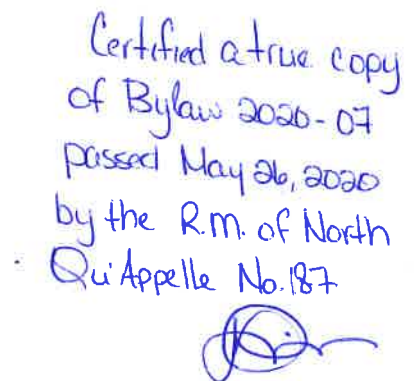 Certified a true copy
of Bylaw 2020-07
passed May 26, 2020
by the R.M. of North
Qu'Appelle No. 187